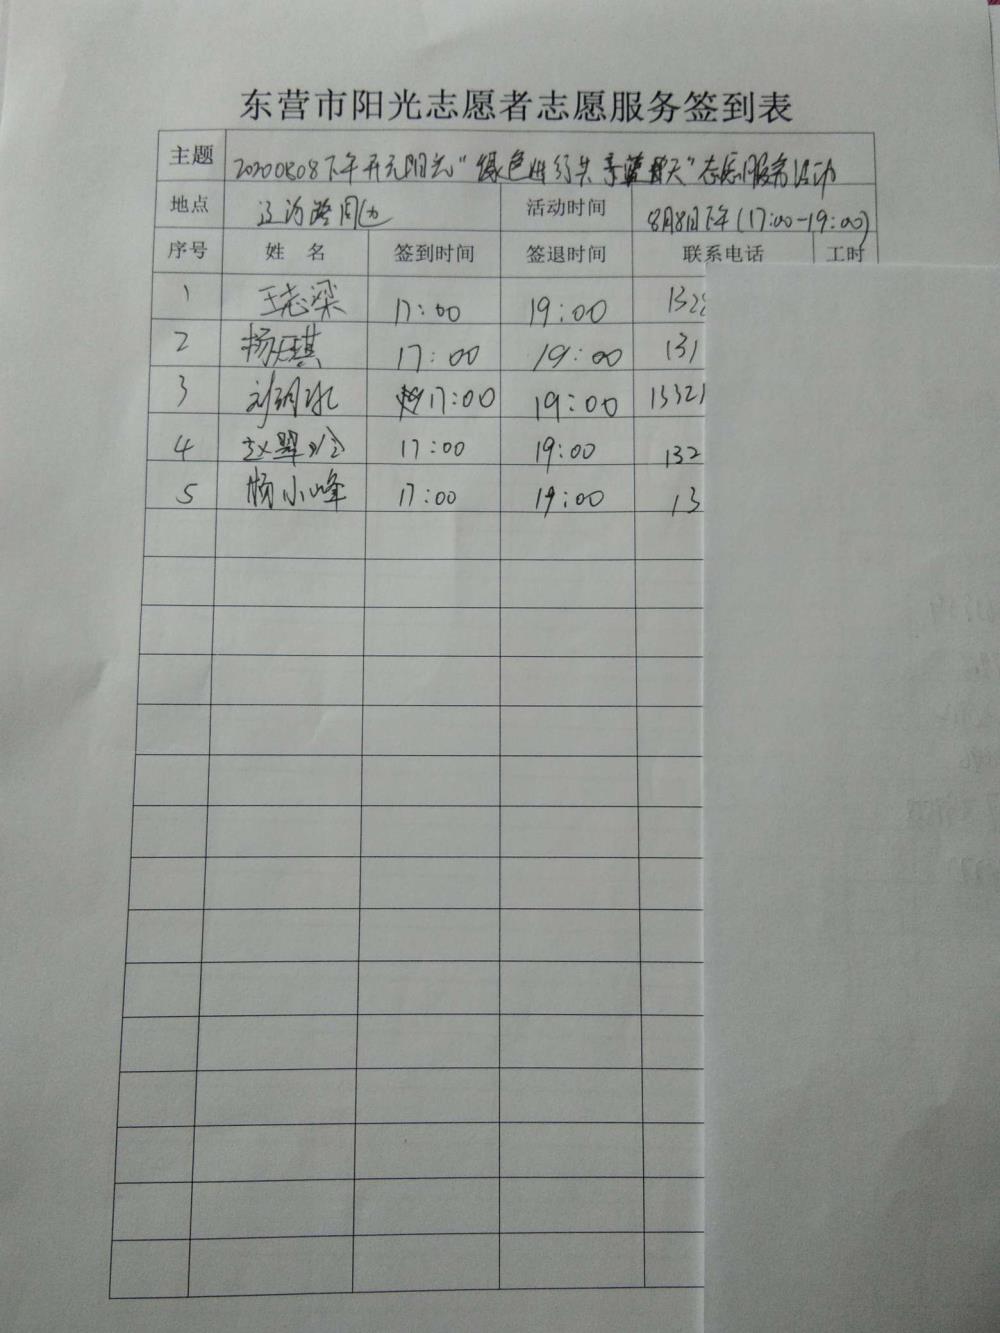 东营市阳光志愿者志愿服务签到表
主题 20200808下午开元阳光"绿色出行 共享蓝天"志愿服务活动
地点 辽河路周边 活动时间 8月8日下午(17:00-19:00)
序号 姓名 签到时间 签退时间 联系电话 工时
1 王志梁 17:00 19:00 132
2 杨 琪 17:00 19:00 131
3 刘 冰 17:00 19:00 1332
4 赵翠玲 17:00 19:00 132
5 杨小峰 17:00 19:00 13